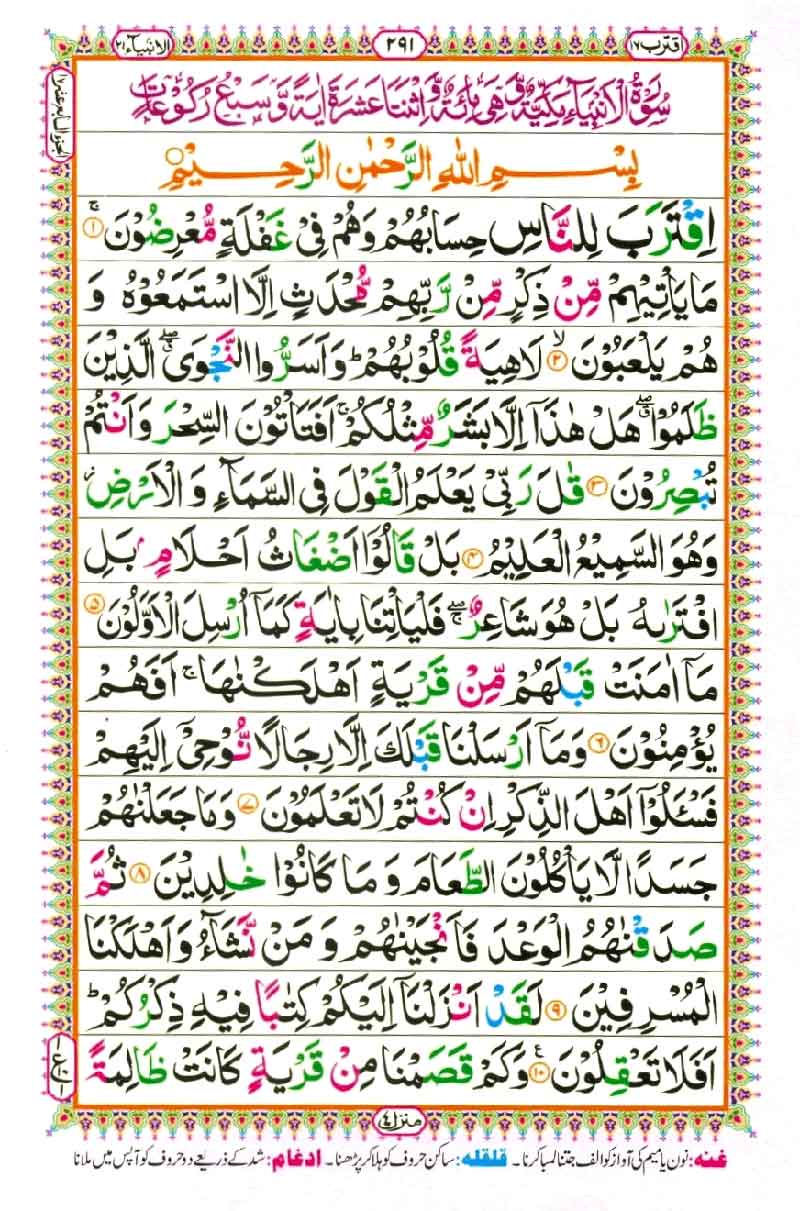 اقترب ١٧
٢٩١
الانبیآء ٢١
سُوْرَةُ الْاَنْبِیَآءِ مَکِّیَّةٌ وَّ هِیَ مِائَةٌ وَّ اثْنَتَا عَشَرَةَ اٰیَةً وَّ سَبْعُ رُکُوْعَاتٍ
بِسْمِ اللّٰهِ الرَّحْمٰنِ الرَّحِیْمِ
اِقْتَرَبَ لِلنَّاسِ حِسَابُهُمْ وَهُمْ فِیْ غَفْلَةٍ مُّعْرِضُوْنَ ۚ ١
مَا یَاْتِیْهِمْ مِّنْ ذِکْرٍ مِّنْ رَّبِّهِمْ مُّحْدَثٍ اِلَّا اسْتَمَعُوْهُ وَ
هُمْ یَلْعَبُوْنَ ۙ ٢ لَاهِیَةً قُلُوْبُهُمْ ؕ وَاَسَرُّوا النَّجْوَی ۖۗ الَّذِیْنَ
ظَلَمُوْا ۖۗ هَلْ هٰذَآ اِلَّا بَشَرٌ مِّثْلُکُمْ ۚ اَفَتَاْتُوْنَ السِّحْرَ وَاَنْتُمْ
تُبْصِرُوْنَ ٣ قٰلَ رَبِّیْ یَعْلَمُ الْقَوْلَ فِی السَّمَآءِ وَ الْاَرْضِ ؗ
وَهُوَ السَّمِیْعُ الْعَلِیْمُ ٤ بَلْ قَالُوْۤا اَضْغَاثُ اَحْلَامٍۭ بَلِ
افْتَرٰىهُ بَلْ هُوَ شَاعِرٌ ۖۚ فَلْیَاْتِنَا بِاٰیَةٍ کَمَآ اُرْسِلَ الْاَوَّلُوْنَ ٥
مَآ اٰمَنَتْ قَبْلَهُمْ مِّنْ قَرْیَةٍ اَهْلَکْنٰهَا ۚ اَفَهُمْ
یُؤْمِنُوْنَ ٦ وَمَآ اَرْسَلْنَا قَبْلَكَ اِلَّا رِجَالًا نُّوْحِیْۤ اِلَیْهِمْ
فَسْئَلُوْۤا اَهْلَ الذِّکْرِ اِنْ کُنْتُمْ لَا تَعْلَمُوْنَ ٧ وَمَا جَعَلْنٰهُمْ
جَسَدًا لَّا یَاْکُلُوْنَ الطَّعَامَ وَ مَا کَانُوْا خٰلِدِیْنَ ٨ ثُمَّ
صَدَقْنٰهُمُ الْوَعْدَ فَاَنْجَیْنٰهُمْ وَ مَنْ نَّشَآءُ وَاَهْلَکْنَا
الْمُسْرِفِیْنَ ٩ لَقَدْ اَنْزَلْنَآ اِلَیْکُمْ کِتٰبًا فِیْهِ ذِکْرُکُمْ ؕ
اَفَلَا تَعْقِلُوْنَ ١٠ وَکَمْ قَصَمْنَا مِنْ قَرْیَةٍ کَانَتْ ظَالِمَةً
الجزو السابع عشر ١٧
منزل ٤
غنه: نون یا میم کی آواز کو الف جتنا لمبا کرنا۔ قلقله: ساکن حروف کو ہلا کر پڑھنا۔ ادغام: شد کے ذریعے دو حروف کو آپس میں ملانا